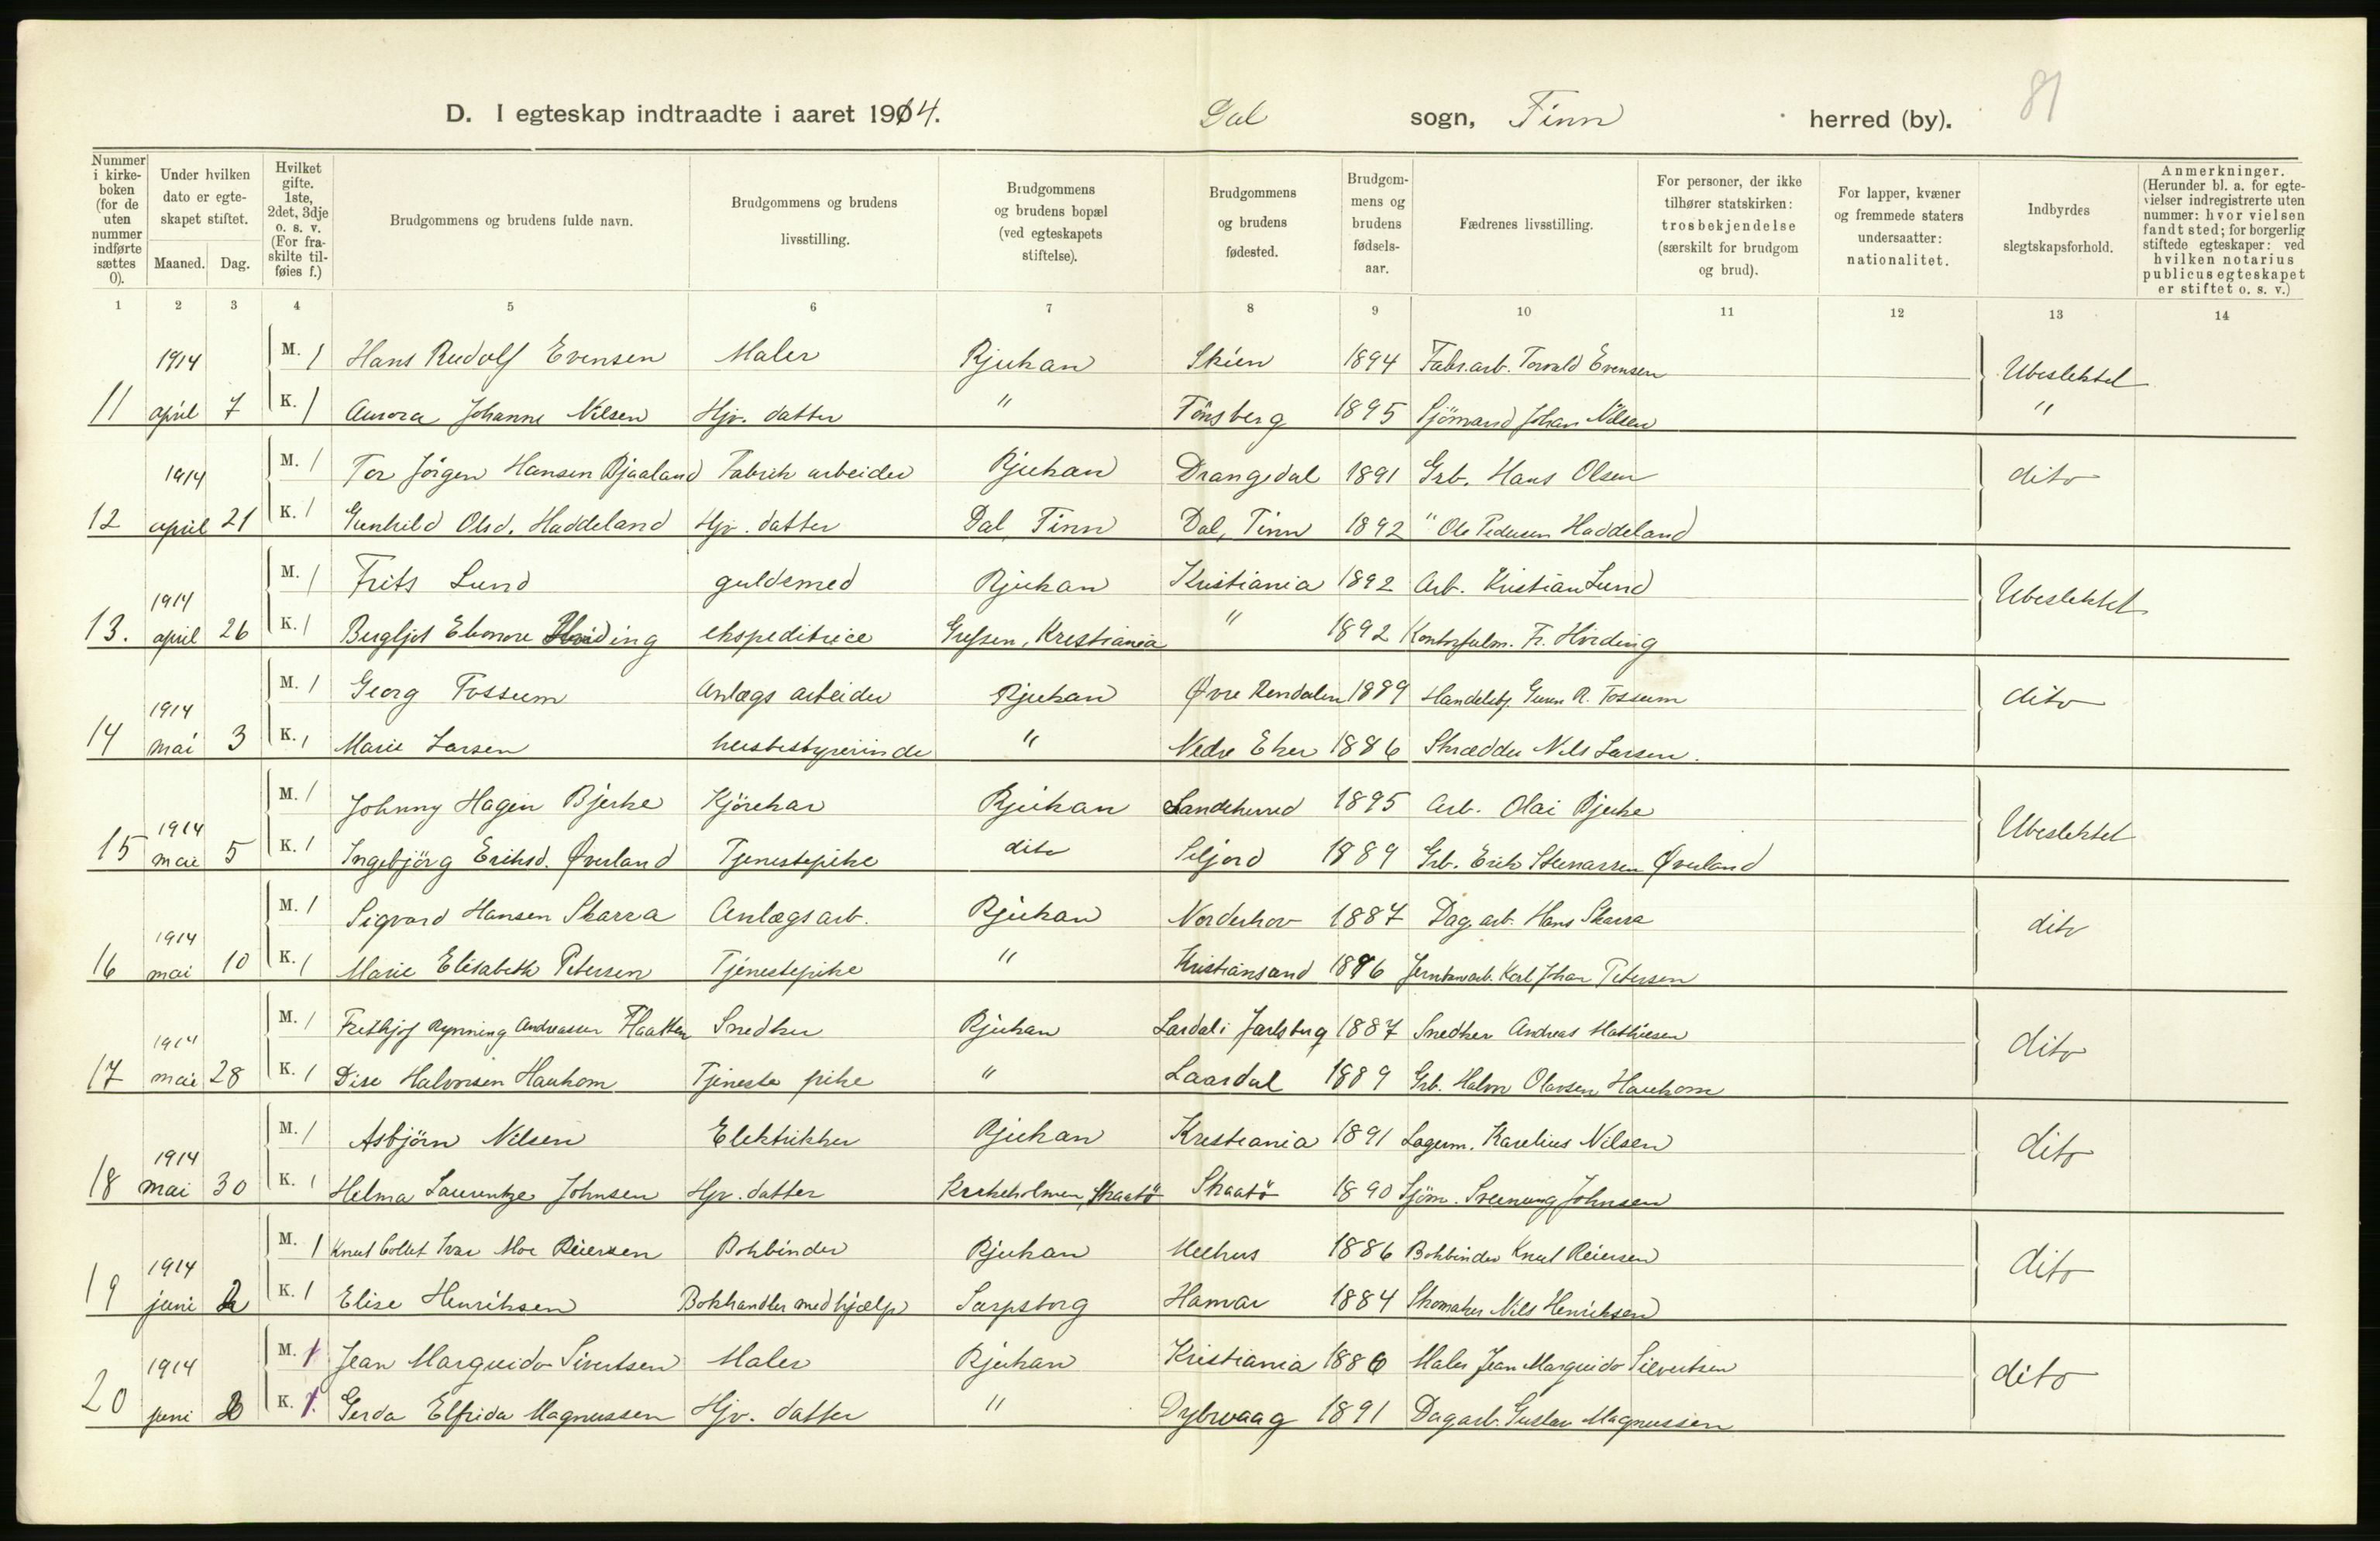 D. I egteskap indtraadte i aaret 1914. Dal sogn, Tinn herred (by). 81
Nummer i kirkeboken (for de uten nummer indførte sættes 0). Under hvilken dato er egteskapet stiftet. Maaned. Dag. Hvilket gifte. 1ste, 2det, 3dje o. s. v. (For fraskilte tilføies f.) Brudgommens og brudens fulde navn. Brudgommens og brudens livsstilling. Brudgommens og brudens bopæl (ved egteskapets stiftelse). Brudgommens og brudens fødested. Brudgommens og brudens fødselsaar. Fædrenes livsstilling. For personer, der ikke tilhører statskirken: trosbekjendelse (særskilt for brudgom og brud). For lapper, kvæner og fremmede staters undersaatter: nationalitet. Indbyrdes slegtskapsforhold. Anmerkninger. (Herunder bl. a. for egtevielser indregistrerte uten nummer: hvor vielsen fandt sted; for borgerlig stiftede egteskaper: ved hvilken notarius publicus egteskapet er stiftet o. s. v.)
1 2 3 4 5 6 7 8 9 10 11 12 13 14
1914 M. 1 Hans Rudolf Evensen Maler Rjukan Skien 1894 Fabr.arb. Torvald Evensen Ubeslektet
11 april 7 K. 1 Aurora Johanne Nilsen Hjv. datter " Tönsberg 1895 Sjömand Johan Nilsen "
1914 M. 1 Tor Jörgen Hansen Bjaaland Fabrik arbeider Rjukan Drangedal 1891 Grb. Hans Olsen dito
12 april 21 K. 1 Gunhild Olsd. Haddeland Hjv. datter Dal, Tinn Dal, Tinn 1892 " Ole Pedersen Haddeland
1914 M. 1 Frits Lund guldsmed Rjukan Kristiania 1892 Arb. Kristian Lund Ubeslektet
13. april 26 K. 1 Bergljot Eleonore Hviding ekspeditrice Grefsen, Kristiania " 1892 Kontorfulm. Fr. Hviding
1914 M. 1 Georg Fossum Anlægs arbeider Rjukan Øvre Rendalen 1889 Handelsbj. Gunn R. Fossum dito
14 mai 3 K. 1 Marie Larsen husbestyrerinde " Nedre Eker 1886 Skrædder Nils Larsen.
M. 1 Johnny Hagin Bjerke Kjörekar Rjukan Sandeherred 1895 Arb. Olai Bjerke Ubeslektet
15 1914 mai 5 K. 1 Ingebjörg Eriksd. Øverland Tjenestepike dito Seljord 1889 Grb. Erik Steinarsen Øverland
1914 M. 1 Sigvard Hansen Skarra Anlægsarb. Rjukan Norderhov 1887 Dag.arb. Hans Skarra dito
16 mai 10 K. 1 Marie Elisabeth Petersen Tjenestepike " Kristiansand 1886 Jernbanearb. Karl Johan Petersen
1914 M. 1 Frithjof Rynning Andreassen Flaatten Snedker Rjukan Lardal i Jarlsberg 1887 Snedker Andreas Mathiesen dito
17 mai 28 K. 1 Dise Halvorsen Haukom Tjeneste pike " Laardal 1889 Grb. Halvor Olavsen Haukom
1914 M. 1 Asbjörn Nilsen Elektrikker Rjukan Kristiania 1891 Lagerm. Karelius Nilsen dito
18 mai 30 K. 1 Helma Laurentze Johnsen Hjv. datter Kirkeholmen, Skaatö Skaatö 1890 Sjöm. Sveinung Johnsen
1914 M. 1 Knut Collet Ivar Moe Reiersen Bokbinder Rjukan Melhus 1886 Bokbinder Knut Reiersen dito
19 juni 2 K. 1 Elise Henriksen Bokhandler medhjælp Sarpsborg Hamar 1884 Skomaker Nils Henriksen
1914 M. 1 Jean Marguido Sivertsen Maler Rjukan Kristiania 1886 Maler Jean Marguido Sivertsen dito
20 juni K. 1. Gerda Elfrida Magnussen Hjv. datter " Dybvaag 1891 Dagarb. Gustav Magnussen